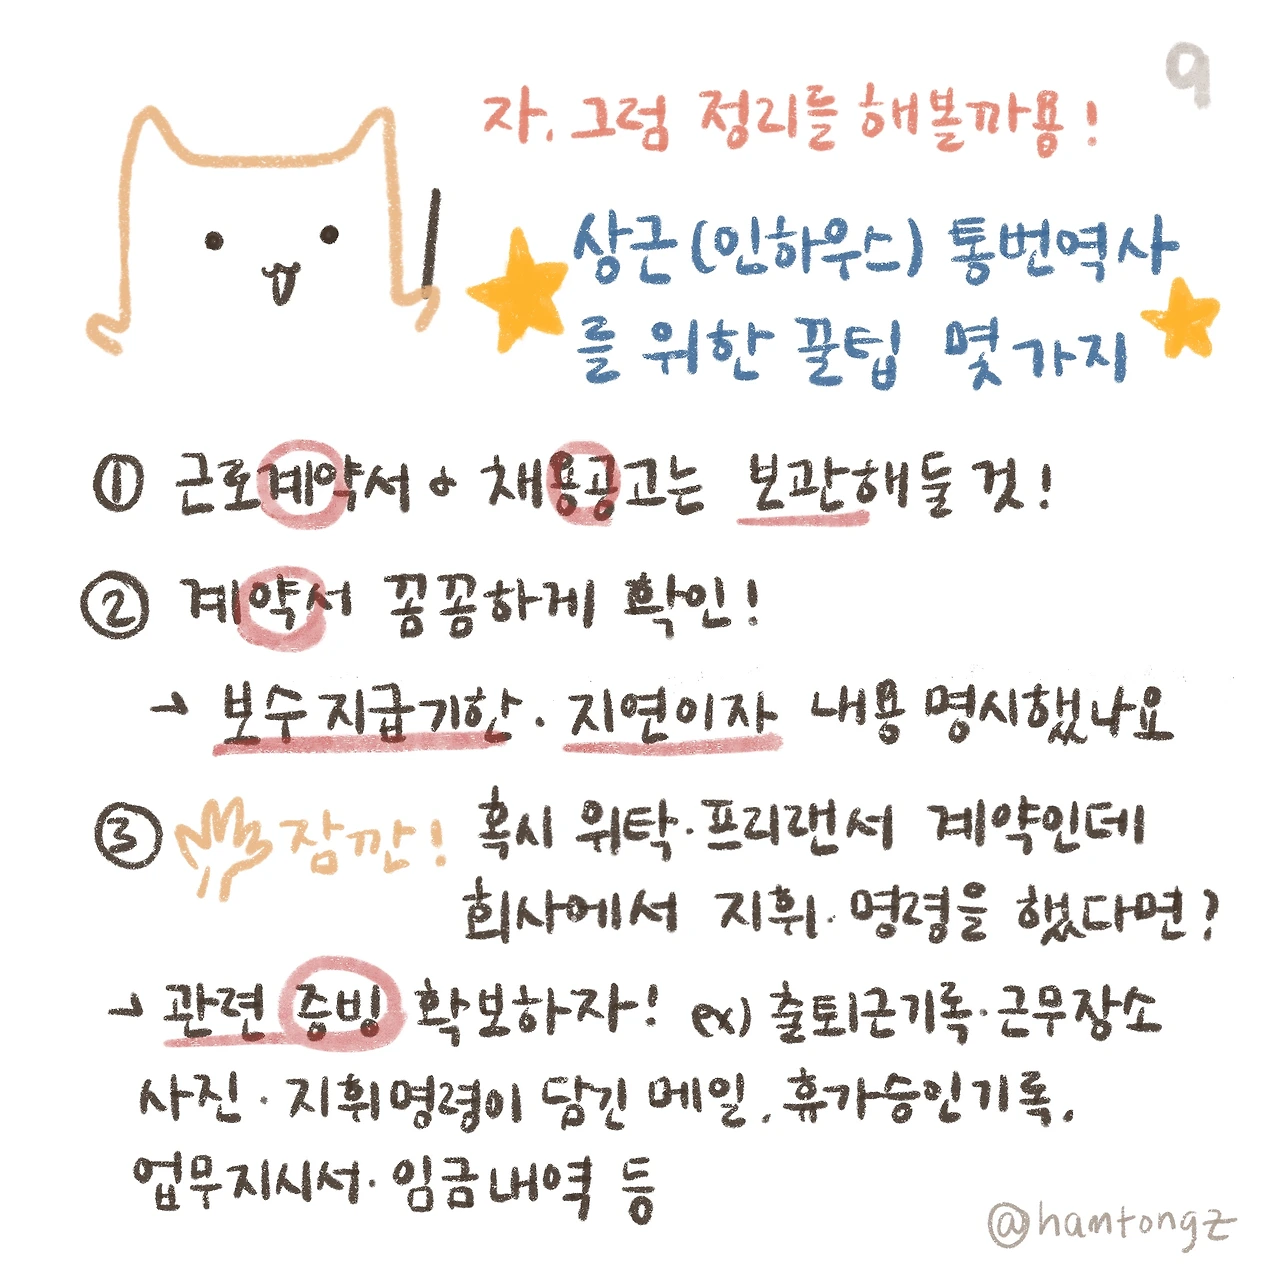 9
자, 그럼 정리를 해볼까용!
상근(인하우스) 통번역사
를 위한 꿀팁 몇가지
① 근로계약서와 채용공고는 보관해둘 것!
② 계약서 꼼꼼하게 확인!
→ 보수지급기한·지연이자 내용 명시했나요
③ 잠깐! 혹시 위탁·프리랜서 계약인데
회사에서 지휘·명령을 했다면?
→ 관련 증빙 확보하자! ex) 출퇴근기록·근무장소
사진·지휘명령이 담긴 메일, 휴가승인기록,
업무지시서·임금내역 등
@hamtongz